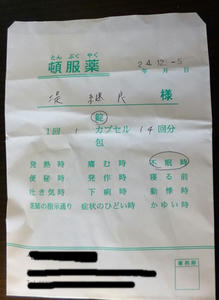 とん ぷく やく
頓服薬
24.12.-5
年 月 日
堤 継民 様
錠
1回 1 カプセル 14回分
包
発熱時 痛む時 不眠時
便秘時 発作時 寝る前
吐き気時 下痢時 動悸時
医師の指示通り 症状のひどい時 かゆい時
薬剤部